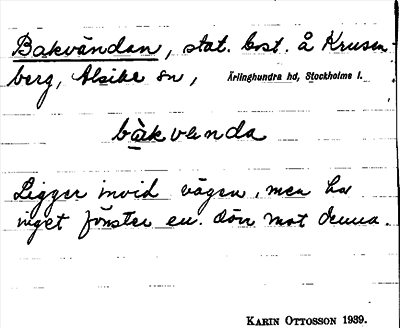 Bakvändan, stat. bost. å Krusen-
berg, Alsike sn, Ärlinghundra hd, Stockholms l.
bàkvenda
Ligger invid vägen, men ha
inget fönster en. dörr mot denna.
KARIN OTTOSSON 1939.